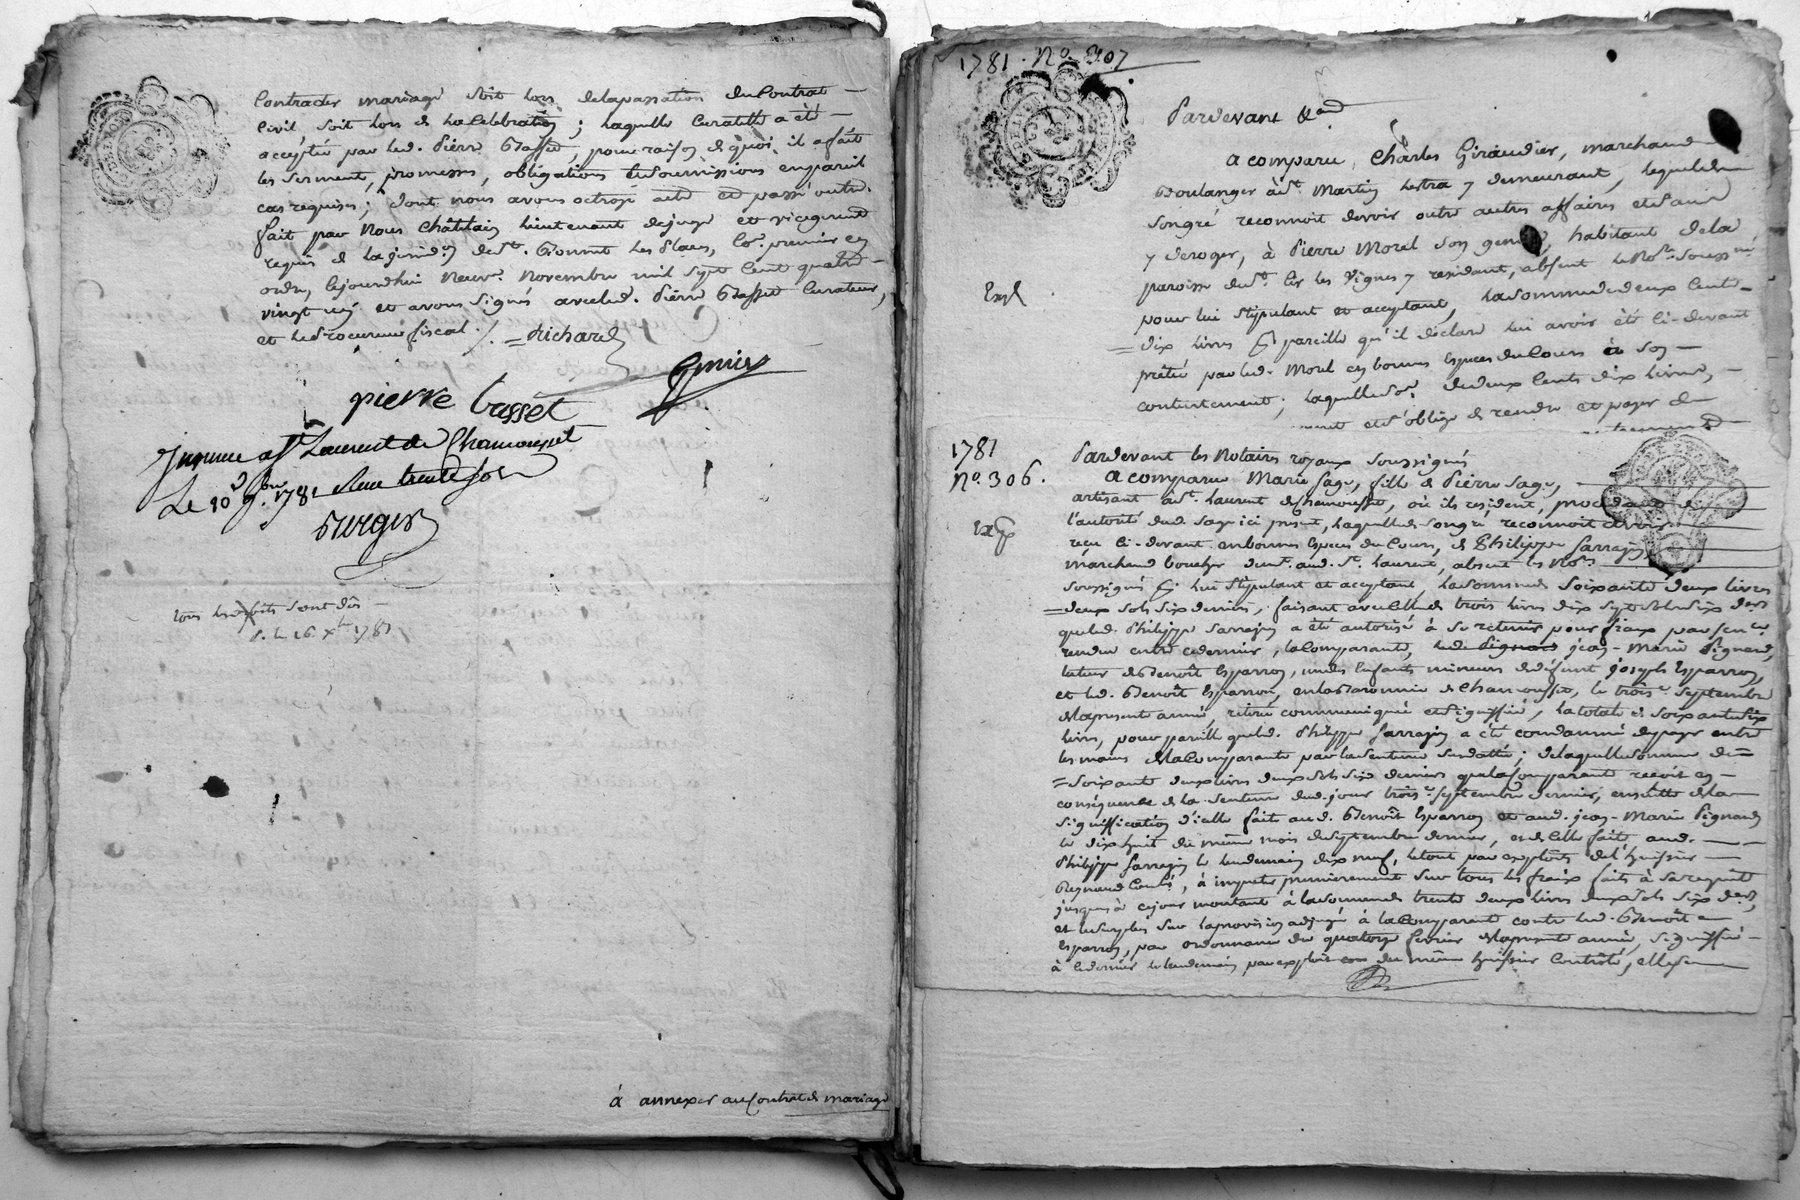 Contracter mariage soit lors de la passation du Contrat
Civil, soit lors de la Celebration; laquelle Curatelle a été
acceptée par led. Pierre Basset, pour raison de quoi, il a fait
les Serment, promesses, obligations et Soumissions en pareil
cas requises; dont nous avons octroyé acte et passé outre.
fait par Nous Châtelain Lieutenant de juge et vicegerent
requis de la jurid.on de St. Bonnet les Places, premier en
ordre, Cejourdhui Neuv.e Novembre mil Sept Cent quatre
vingt un, et avons Signés avec led. Pierre Basset Curateur,
et le Procureur fiscal ./. Richard
pierre basset
à St Laurent de Chamousset
Le 10 9bre 1781 Reçu trente sols
Berger
tous les droits sont dûs
1781
à annexer au Contrat de mariage
1781. No. 307
Pardevant &a
a comparu, Charles Giraudier, marchand
Boulanger à St. Martin Lestra y demeurant, lequel de
Son gré reconnoit devoir outre autres affaires et sans
y deroger, à Pierre Morel Son gendre, habitant de la
paroisse de St. Cir les Vignes y residant, absent le No.re Soussigné
pour lui Stipulant et acceptant, la Somme de deux Cents
dix livres pareille qu'il déclare lui avoir été Ci-devant
prêtée par led. Morel en bonnes Especes du Cours à Son
contentement; laquelle So.e de deux Cents dix livres,
et s'oblige de rendre et payer
Expé
1781
No. 306.
Pardevant les Notaires royaux Soussignés
a comparu Marie Sage, fille de Pierre Sage,
artisant à St. Laurent de Chamousset, où ils resident, procedant de
l'autorité dud. Sage ici présent, laquelle de Son gré, reconnoit avoir
reçu Ci-devant en bonnes Especes du Cours, de Philippe Sarrazin
marchand boucher aud. St. Laurent, absent les No.res
Soussignés lui Stipulant et acceptant, la Somme de Soixante deux livres
deux sols six deniers, faisant avec Celle de trois livres dix Sept Sols Six
que led. Philippe Sarrazin a été autorisé à Se retenir pour fraix par
rendue entre ce dernier, la Comparante, led. Pignard jean-Marie Pignard,
tuteur de Benoît Esparron, un des Enfants mineurs de défunt joseph Esparron,
et led. Benoît Esparron, en la Baronnie de Chamousset, le trois.e Septembre
de la presente année, retirée communiquée et Signiffiée, la totale de Soixante Six
livres, pour pareille que led. Philippe Sarrazin a été condamné de payer entre
les mains de la Comparante par la Sentence Susdattée; de laquelle Somme de
Soixante deux livres deux Sols Six deniers que la Comparante reçoit en
conséquence de la Sentence dud. jour trois.e Septembre dernier, ensuitte de la
Signiffication d'icelle faite aud. Benoît Esparron et aud. jean-Marie Pignard
le dix huit du même mois de Septembre dernier, et de Celle faite aud.
Philippe Sarrazin le lendemain dix neuf, le tout par exploits de l'huissier
à imputer premierement Sur tous les fraix faits à Sa requête
jusques à ce jour montant à la Somme de trente deux livres deux Sols Six
et le Surplus Sur la provision adjugée à la Comparante contre led. Benoît
Esparron, par ordonnance du quatorze fevrier de la presente année, Signiffiée
à Ce dernier le lendemain par exploit du même huissier Contrôlé,